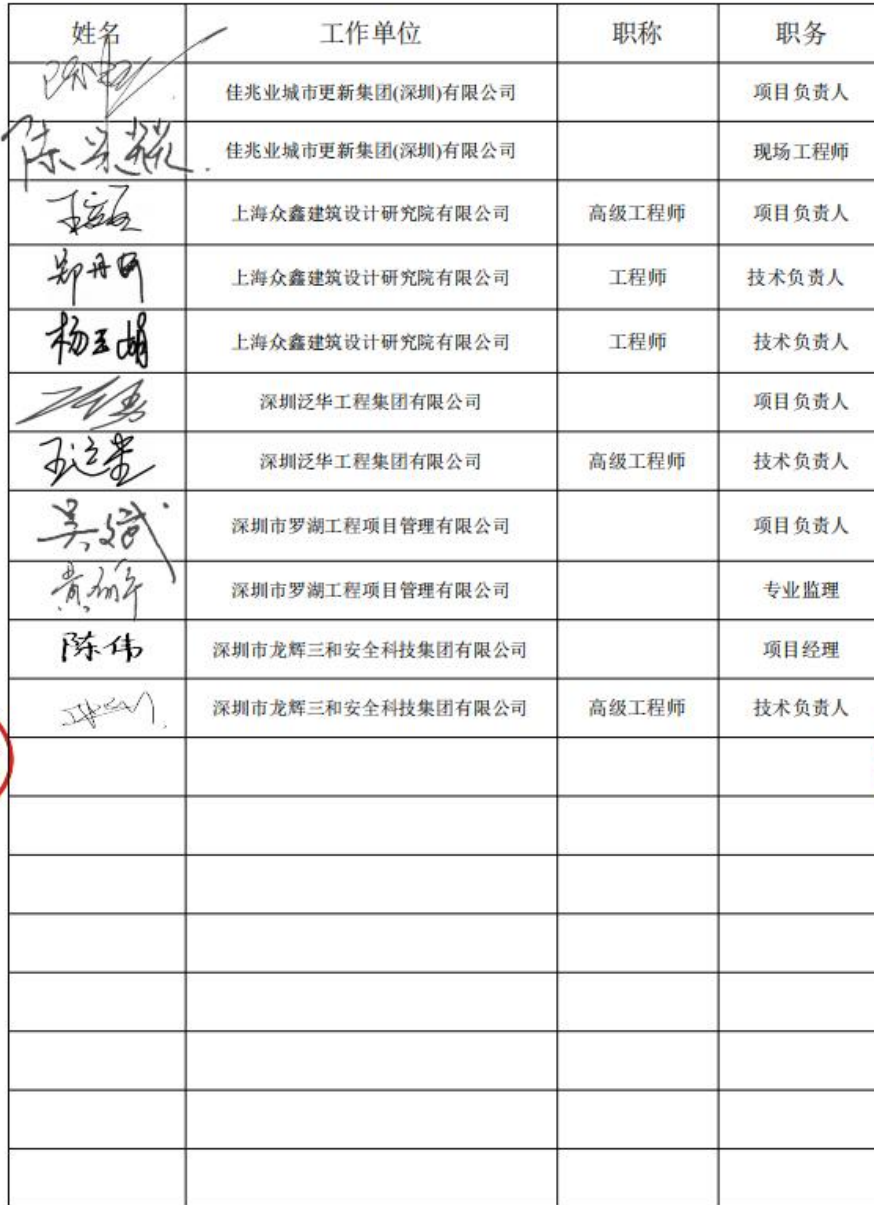 姓名 工作单位 职称 职务
佳兆业城市更新集团(深圳)有限公司 项目负责人
陈 佳兆业城市更新集团(深圳)有限公司 现场工程师
王 上海众鑫建筑设计研究院有限公司 高级工程师 项目负责人
郑丹 上海众鑫建筑设计研究院有限公司 工程师 技术负责人
杨玉娟 上海众鑫建筑设计研究院有限公司 工程师 技术负责人
深圳泛华工程集团有限公司 项目负责人
王 深圳泛华工程集团有限公司 高级工程师 技术负责人
吴斌 深圳市罗湖工程项目管理有限公司 项目负责人
黄 深圳市罗湖工程项目管理有限公司 专业监理
陈伟 深圳市龙辉三和安全科技集团有限公司 项目经理
深圳市龙辉三和安全科技集团有限公司 高级工程师 技术负责人